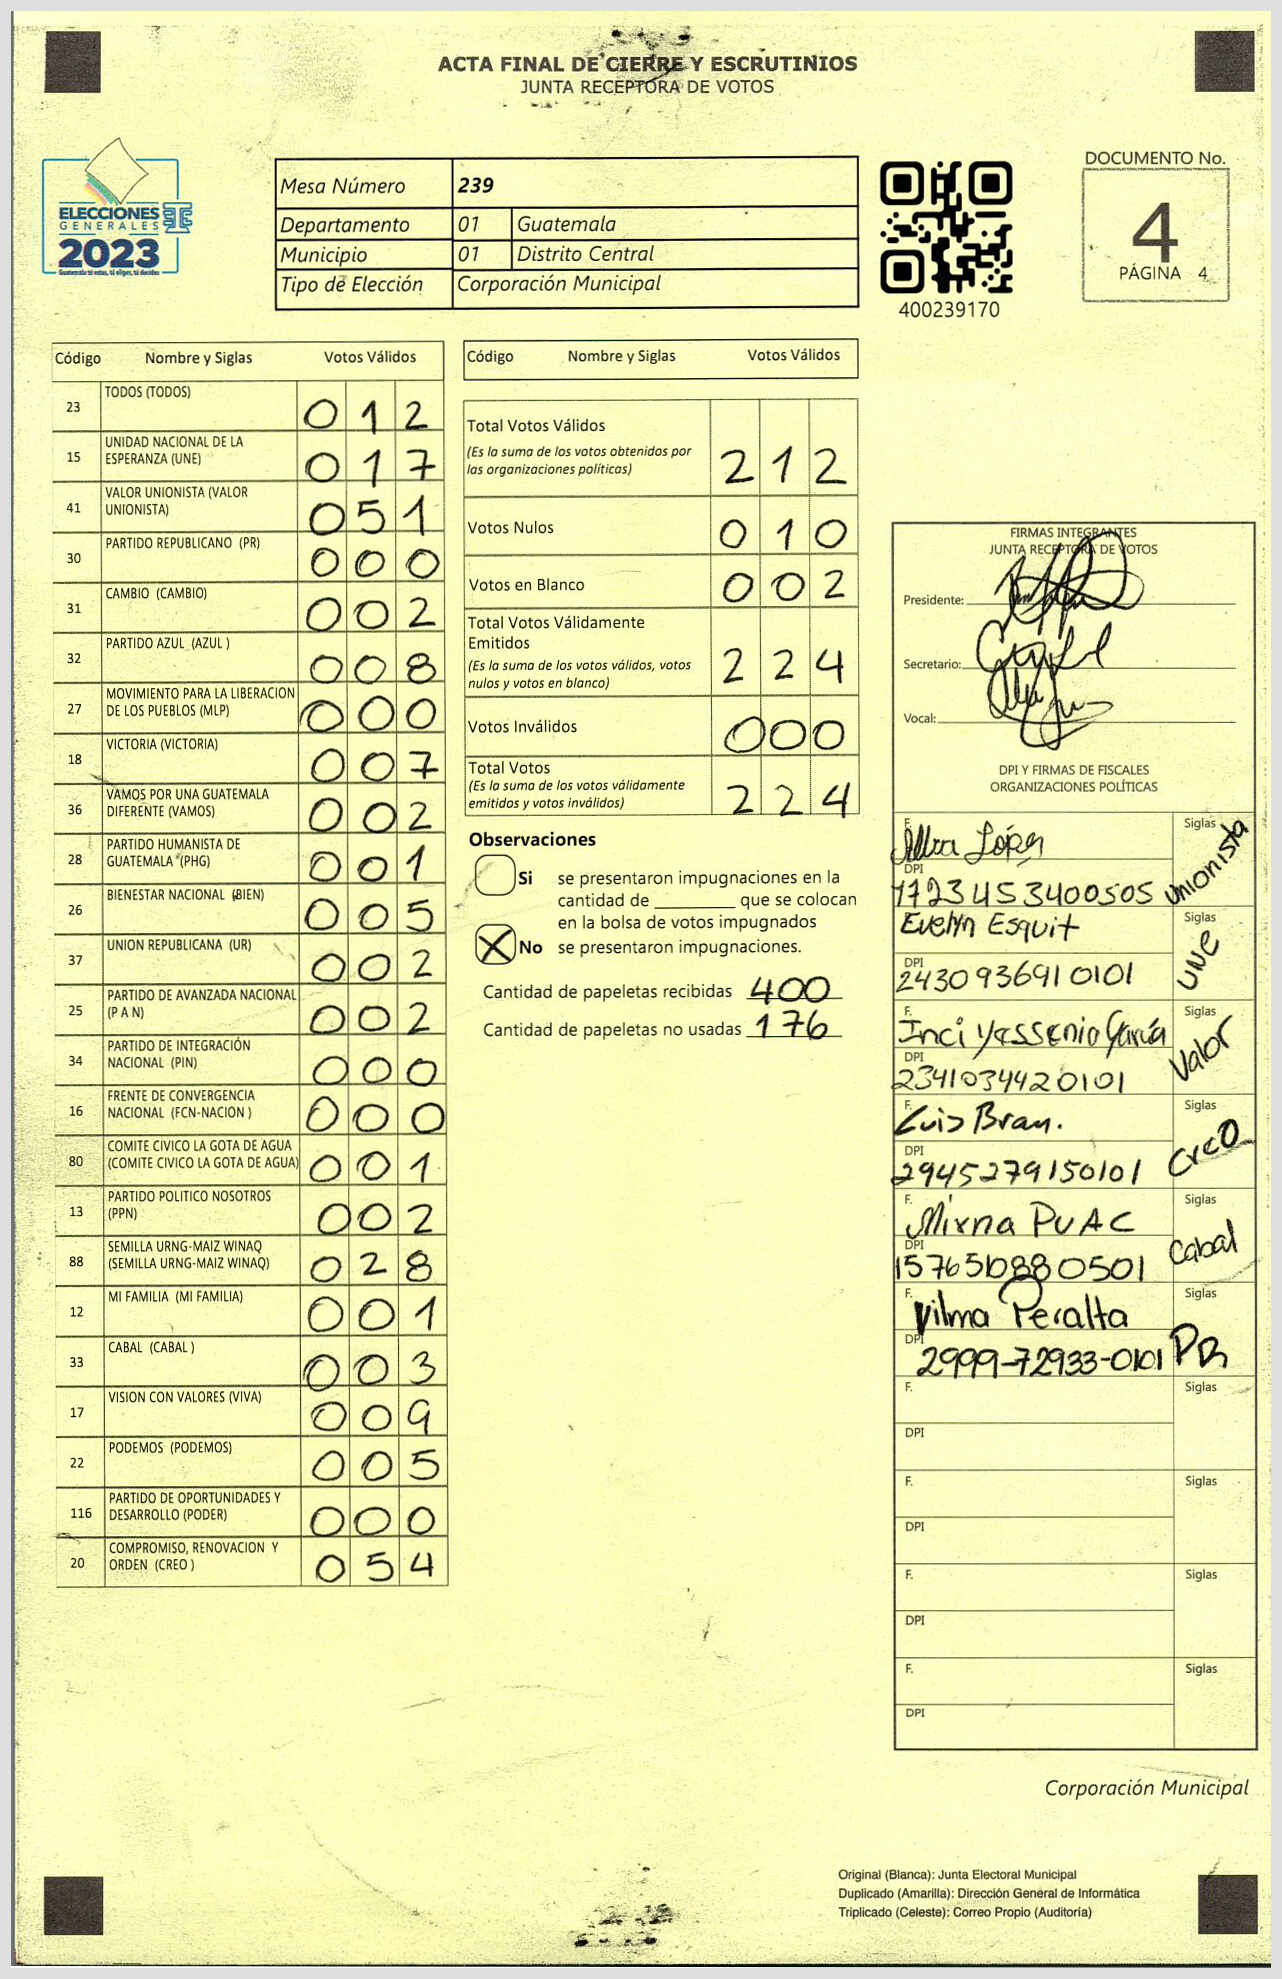 ACTA FINAL DE CIERRE Y ESCRUTINIOS
JUNTA RECEPTORA DE VOTOS
ELECCIONES
GENERALES
2023
Guatemala tú votas, tú eliges, tú decides
Mesa Número 239
Departamento 01 Guatemala
Municipio 01 Distrito Central
Tipo de Elección Corporación Municipal
400239170
DOCUMENTO No.
4
PÁGINA 4
Código Nombre y Siglas Votos Válidos
23 TODOS (TODOS) 0 1 2
15 UNIDAD NACIONAL DE LA
ESPERANZA (UNE) 0 1 7
41 VALOR UNIONISTA (VALOR
UNIONISTA) 0 5 1
30 PARTIDO REPUBLICANO (PR) 0 0 0
31 CAMBIO (CAMBIO) 0 0 2
32 PARTIDO AZUL (AZUL ) 0 0 8
27 MOVIMIENTO PARA LA LIBERACION
DE LOS PUEBLOS (MLP) 0 0 0
18 VICTORIA (VICTORIA) 0 0 7
36 VAMOS POR UNA GUATEMALA
DIFERENTE (VAMOS) 0 0 2
28 PARTIDO HUMANISTA DE
GUATEMALA (PHG) 0 0 1
26 BIENESTAR NACIONAL (BIEN) 0 0 5
37 UNION REPUBLICANA (UR) 0 0 2
25 PARTIDO DE AVANZADA NACIONAL
(P A N) 0 0 2
34 PARTIDO DE INTEGRACIÓN
NACIONAL (PIN) 0 0 0
16 FRENTE DE CONVERGENCIA
NACIONAL (FCN-NACION ) 0 0 0
80 COMITE CIVICO LA GOTA DE AGUA
(COMITE CIVICO LA GOTA DE AGUA) 0 0 1
13 PARTIDO POLITICO NOSOTROS
(PPN) 0 0 2
88 SEMILLA URNG-MAIZ WINAQ
(SEMILLA URNG-MAIZ WINAQ) 0 2 8
12 MI FAMILIA (MI FAMILIA) 0 0 1
33 CABAL (CABAL ) 0 0 3
17 VISION CON VALORES (VIVA) 0 0 9
22 PODEMOS (PODEMOS) 0 0 5
116 PARTIDO DE OPORTUNIDADES Y
DESARROLLO (PODER) 0 0 0
20 COMPROMISO, RENOVACION Y
ORDEN (CREO ) 0 5 4
Código Nombre y Siglas Votos Válidos
Total Votos Válidos
(Es la suma de los votos obtenidos por
las organizaciones políticas) 2 1 2
Votos Nulos 0 1 0
Votos en Blanco 0 0 2
Total Votos Válidamente
Emitidos
(Es la suma de los votos válidos, votos
nulos y votos en blanco) 2 2 4
Votos Inválidos 0 0 0
Total Votos
(Es la suma de los votos válidamente
emitidos y votos inválidos) 2 2 4
Observaciones
Si se presentaron impugnaciones en la
cantidad de ________ que se colocan
en la bolsa de votos impugnados
X No se presentaron impugnaciones.
Cantidad de papeletas recibidas 400
Cantidad de papeletas no usadas 176
FIRMAS INTEGRANTES
JUNTA RECEPTORA DE VOTOS
Presidente:
Secretario:
Vocal:
DPI Y FIRMAS DE FISCALES
ORGANIZACIONES POLÍTICAS
F. López Siglas Unionista
DPI 1723453400505
F. Evelyn Esquit Siglas UNE
DPI 2430936910101
F. Inci Yessenia García Siglas Valor
DPI 2341034420101
F. Luis Bran. Siglas CreO
DPI 2945279150101
F. Mirna PUAC Siglas Cabal
DPI 1576510880501
F. Vilma Peralta Siglas PR
DPI 2999-72933-0101
F. Siglas
DPI
F. Siglas
DPI
F. Siglas
DPI
F. Siglas
DPI
Corporación Municipal
Original (Blanca): Junta Electoral Municipal
Duplicado (Amarilla): Dirección General de Informática
Triplicado (Celeste): Correo Propio (Auditoría)